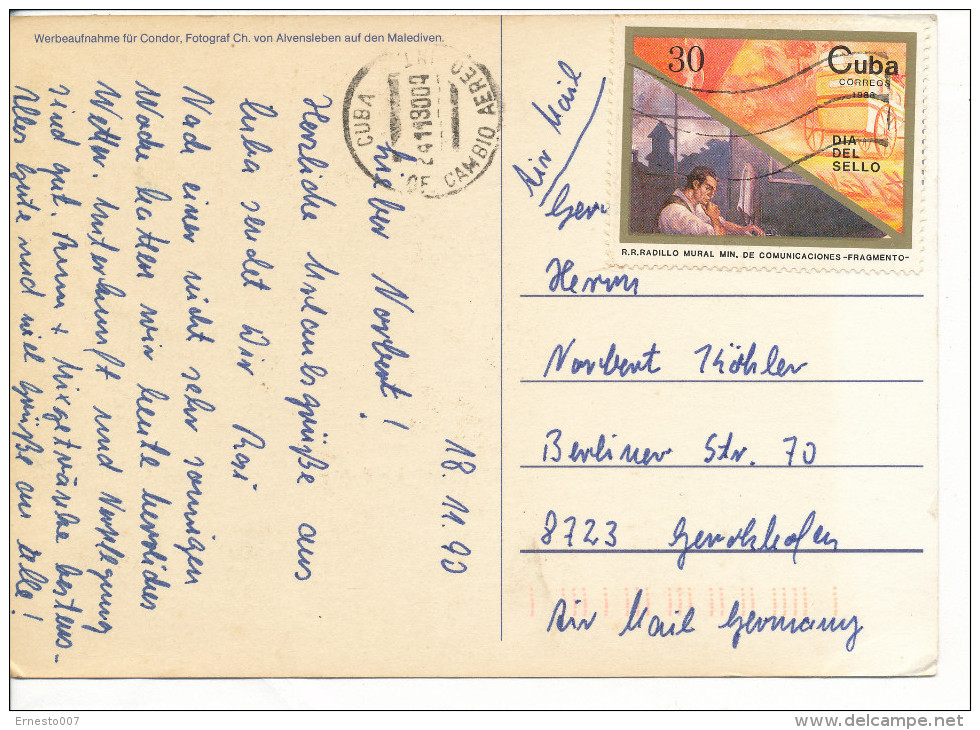 Werbeaufnahme für Condor, Fotograf Ch. von Alvensleben auf den Malediven.
18.11.90
Lieber Norbert!
Herzliche Urlaubsgrüße aus
Kuba sendet Dir Rosi
Nach einer nicht sehr sonnigen
Woche hatten wir heute herrliches
Wetter. Unterkunft und Verpflegung
sind gut. Rum + Mixgetränke bestens.
Alles Gute und viel Grüße an alle!
CUBA
CAMBIO AEREO
Air Mail
30
Cuba
CORREOS
1988
DIA
DEL
SELLO
R.R.RADILLO MURAL MIN. DE COMUNICACIONES -FRAGMENTO-
Air Mail
Herrn
Norbert Köhler
Berliner Str. 70
8723 Gerolzhofen
Air Mail Germany
Ernesto007
delcampe.net